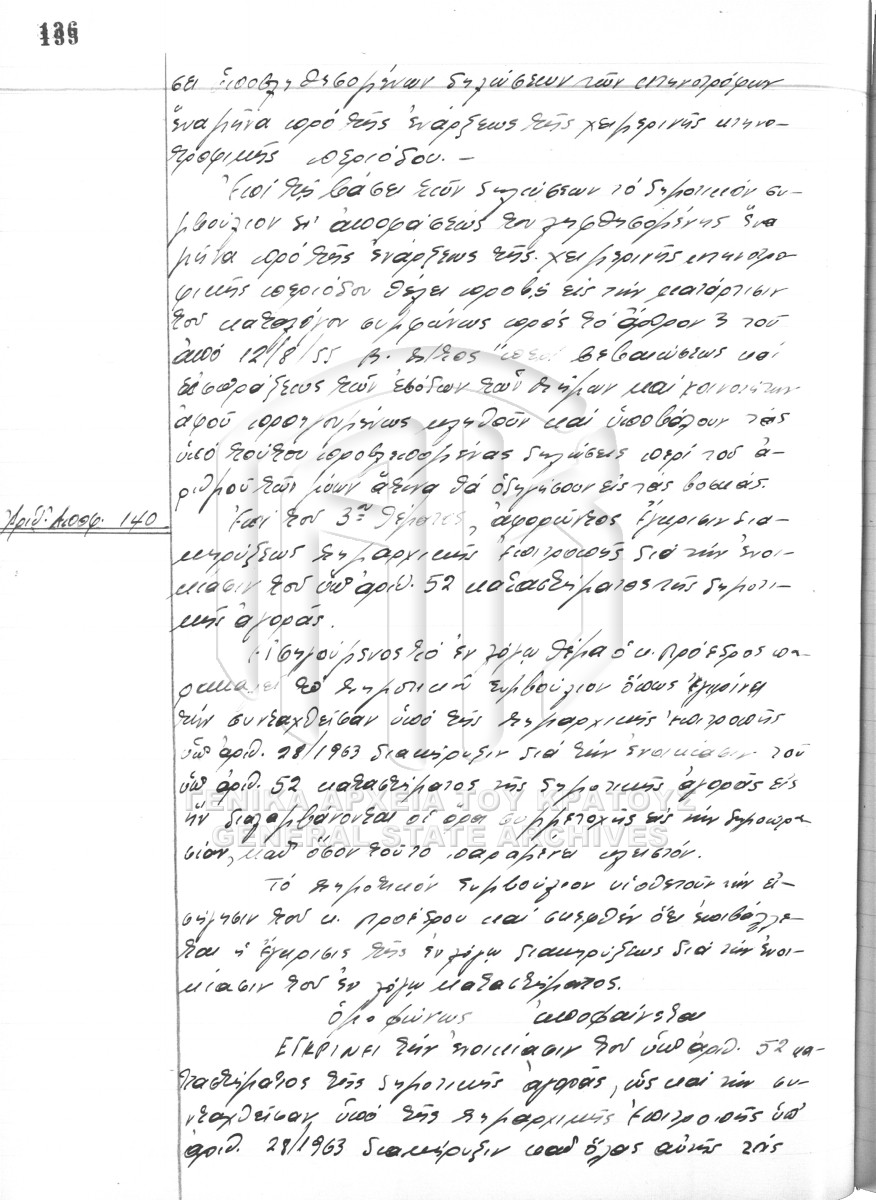 136
σει υποβληθησομένων δηλώσεων τών κτηνοτρόφων
ἕνα μῆνα πρό τῆς ἐνάρξεως τῆς χειμερινῆς κτηνο-
τροφικῆς περιόδου. –
Ἐπί τῇ βάσει τῶν δηλώσεων τό δημοτικόν συ-
μβούλιον δι' ἀποφάσεώς του ληφθησομένης ἕνα
μῆνα πρό τῆς ἐνάρξεως τῆς χειμερινῆς κτηνοτρο-
φικῆς περιόδου θέλει προβῆ εἰς τήν κατάρτισιν
τοῦ καταλόγου συμφώνως πρός τό ἄρθρον 3 τοῦ
ἀπό 12/8/55 Β. Δ/τος "περί βεβαιώσεως καί
εἰσπράξεως τῶν ἐσόδων τῶν δήμων καί κοινοτήτων
ἀφοῦ προηγουμένως κληθοῦν καί ὑποβάλουν τάς
ὑπό τούτου προβλεπομένας δηλώσεις περί τοῦ ἀ-
ριθμοῦ τῶν ζώων ἅτινα θά ὁδηγήσουν εἰς τάς βοσκάς.
Ἀριθ. Ἀποφ. 140
Ἐπί τοῦ 3ου θέματος, ἀφορῶντος ἔγκρισιν δια-
κηρύξεως Δημαρχικῆς Ἐπιτροπῆς διά τήν ἐνοι-
κίασιν τοῦ ὑπ' ἀριθ. 52 καταστήματος τῆς δημοτι-
κῆς ἀγορᾶς.
Εἰσηγούμενος τό ἐν λόγῳ θέμα ὁ κ. Πρόεδρος πα-
ρακαλεῖ τό Δημοτικόν Συμβούλιον ὅπως ἐγκρίνῃ
τήν συνταχθεῖσαν ὑπό τῆς Δημαρχικῆς Ἐπιτροπῆς
ὑπ' ἀριθ. 28/1963 διακήρυξιν διά τήν ἐνοικίασιν τοῦ
ὑπ' ἀριθ. 52 καταστήματος τῆς δημοτικῆς ἀγορᾶς εἰς
ἥν διαλαμβάνονται οἱ ὅροι συμμετοχῆς εἰς τήν δημοπρα-
σίαν, καθ' ὅσον τοῦτο παραμένει κλειστόν.
Τό Δημοτικόν Συμβούλιον υἱοθετοῦν τήν εἰ-
σήγησιν τοῦ κ. Προέδρου καί σκεφθέν ὅτι ἐπιβάλλε-
ται ἡ ἔγκρισις τῆς ἐν λόγῳ διακηρύξεως διά τήν ἐνοι-
κίασιν τοῦ ἐν λόγῳ καταστήματος.
Ὁμοφώνως ἀποφαίνεται
ΕΓΚΡΙΝΕΙ τήν ἐνοικίασιν τοῦ ὑπ' ἀριθ. 52 κα-
ταστήματος τῆς δημοτικῆς ἀγορᾶς, ὡς καί τήν συ-
νταχθεῖσαν ὑπό τῆς Δημαρχικῆς Ἐπιτροπῆς ὑπ'
ἀριθ. 28/1963 διακήρυξιν καθ' ὅλας αὐτῆς τάς
ΓΕΝΙΚΑ ΑΡΧΕΙΑ ΤΟΥ ΚΡΑΤΟΥΣ
GENERAL STATE ARCHIVES